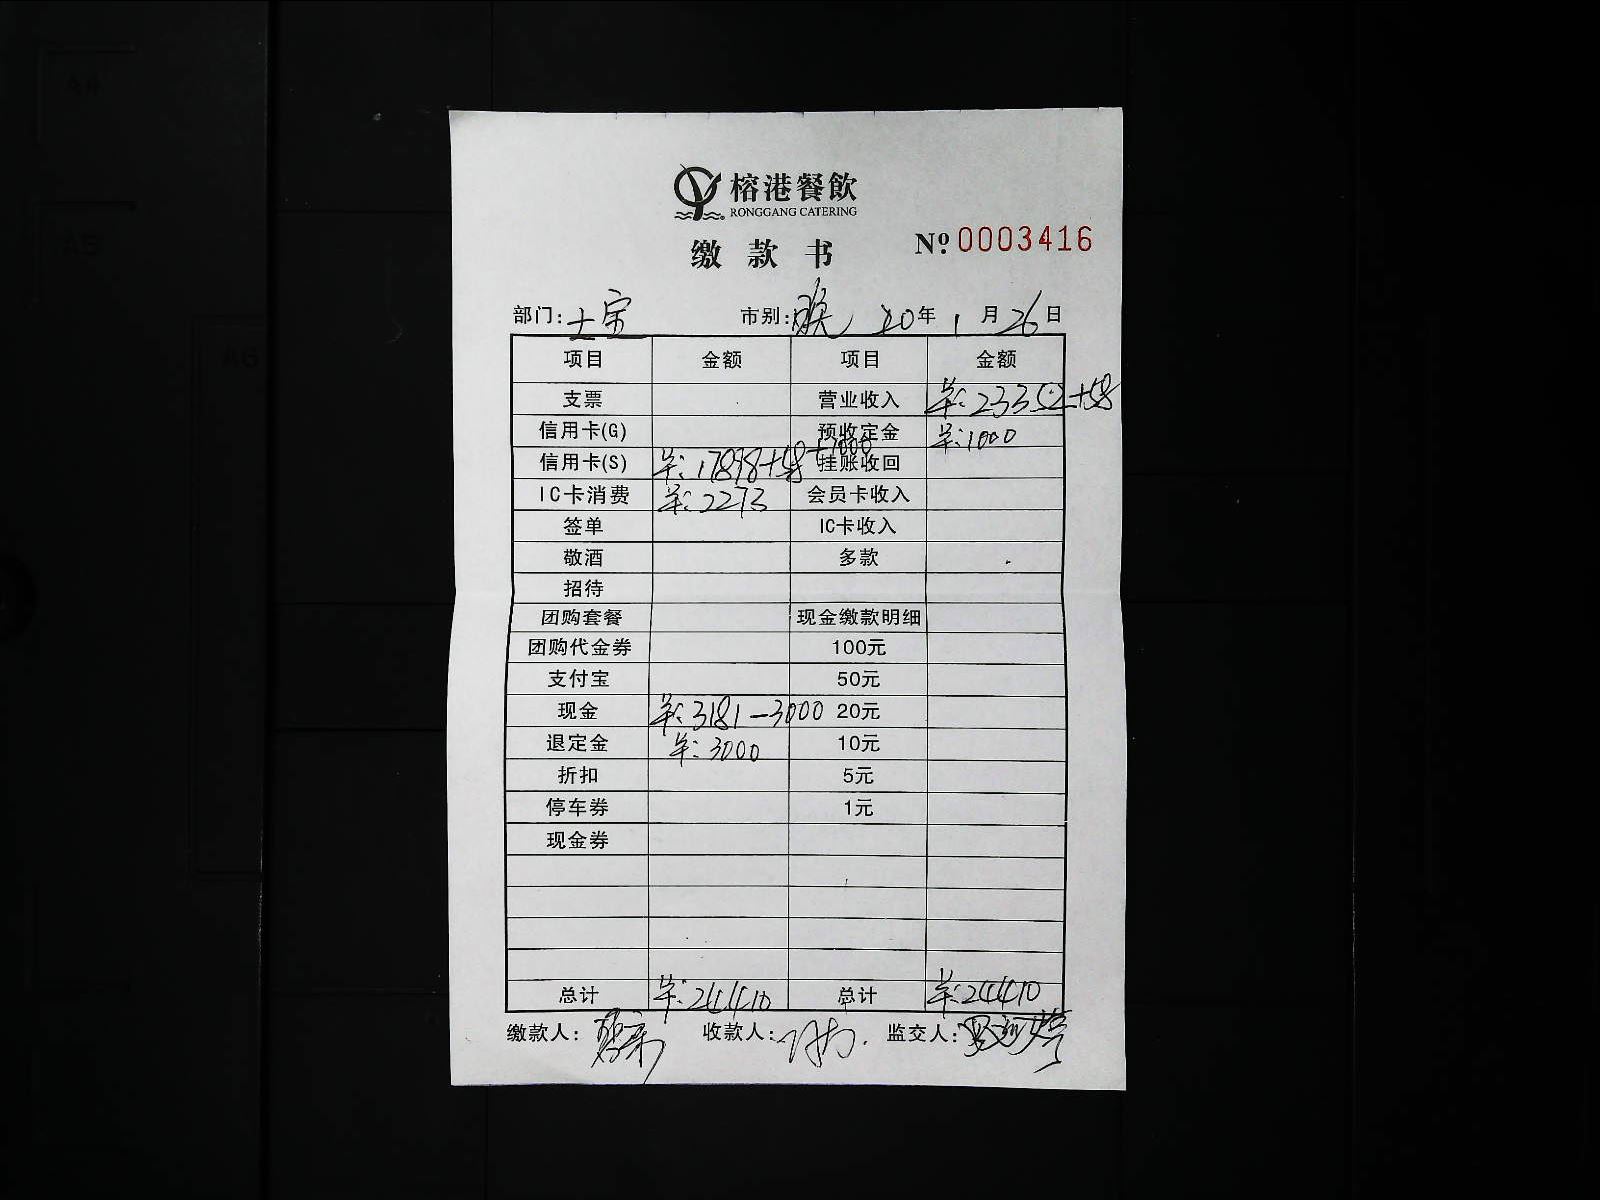 榕港餐飲
RONGGANG CATERING
缴款书 Nº 0003416
部门: 市别: 晚 20年 1月26日
项目 金额 项目 金额
支票 营业收入 ¥:23352+58
信用卡(G) 预收定金 ¥:1000
信用卡(S) ¥:17898+58+1000 挂账收回
IC卡消费 ¥:2273 会员卡收入
签单 IC卡收入
敬酒 多款
招待
团购套餐 现金缴款明细
团购代金券 100元
支付宝 50元
现金 ¥:3181-3000 20元
退定金 ¥:3000 10元
折扣 5元
停车券 1元
现金券
总计 ¥:24410 总计 ¥:24410
缴款人: 收款人: 监交人: